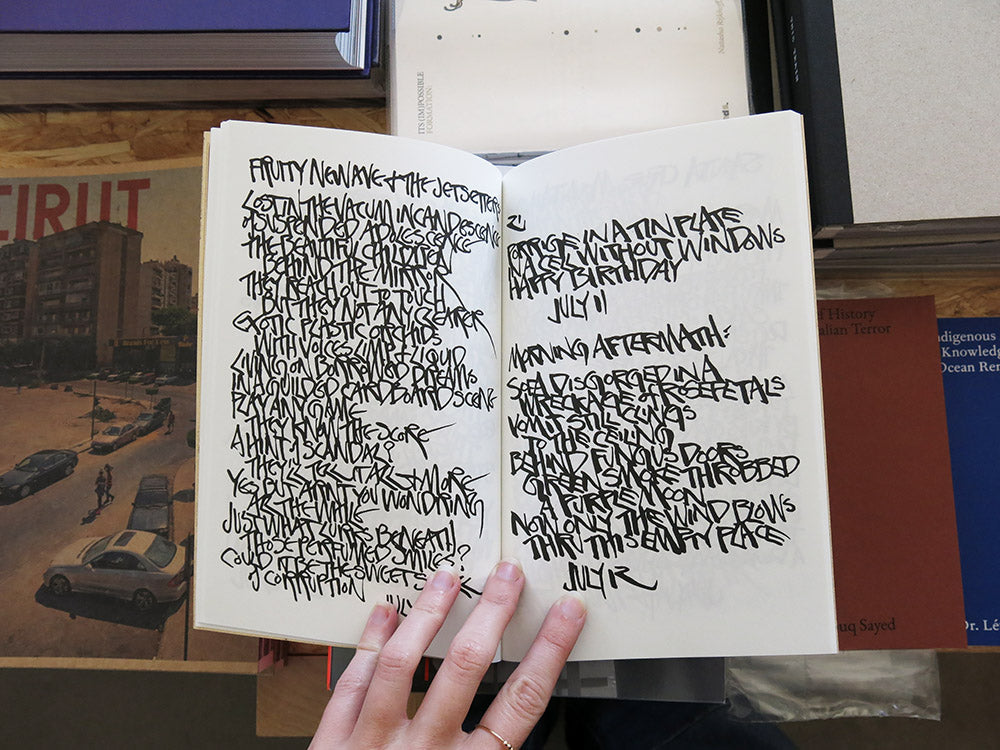 FRUITY NEWAVE + THE JETSETTERS
LOST IN THE VACUM INCANDESCENCE
of SUSPENDED ADOLESCENCE
THE BEAUTIFUL CHILDREN
BEHIND THE MIRROR
THEY REACH OUT TO TOUCH
BUT THEY NOT ANY CLEARER
EXOTIC PLASTIC ORCHIDS
WITH VOICES
LIVING ON BORROWED DREAMS
IN A GUILDED CARDBOARD SCENE
PLAY ANY GAME
THEY KNOW THE SCORE
A HINT of SCANDAL?
THEY'LL TELL IT ALL + MORE
YES, BUT AIN'T YOU WONDRING
ALL THE WHILE
JUST WHAT LURKS BENEATH
THOSE PERFUMED SMILES?
COULD IT BE THE SWEET
of CORRUPTION
JULY
21
PORRIGE IN A TIN PLATE
IN A CELL WITHOUT WINDOWS
HAPPY BIRTHDAY
JULY 11
MORNING AFTERMATH:
SOFA DISGORGED IN A
WRECKAGE of ROSEPETALS
VOMIT STILL CLINGS
TO THE CEILING
BEHIND FUNGUS DOORS
GREEN SMOKE THROBBED
A PURPLE MOON
NOW ONLY THE WIND BLOWS
THRU THIS EMPTY PLACE
JULY 12
EIRUT
ITS (IM)POSSIBLE
FORMATION:
of History
alian Terror
uq Sayed
ndigenous
Knowledg
Ocean Ren
Dr. Lé